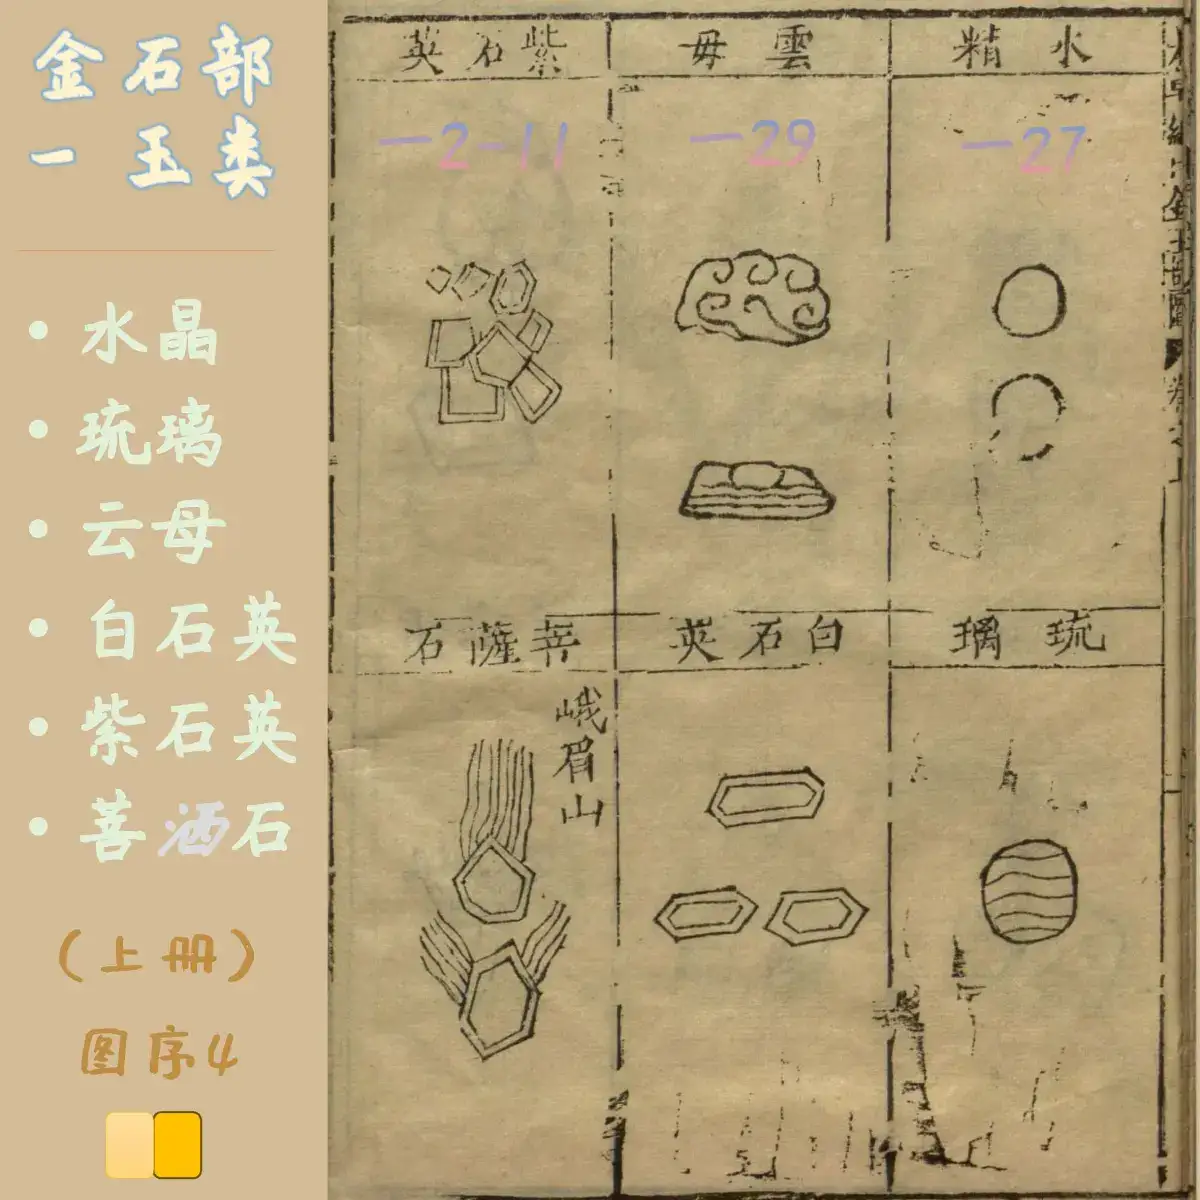 金石部
一 玉类
• 水晶
• 琉璃
• 云母
• 白石英
• 紫石英
• 菩洒石
（上册）
图序4
水精
一27
雲毋
一29
紫石英
一2-11
琉璃
白石英
菩薩石
峨眉山